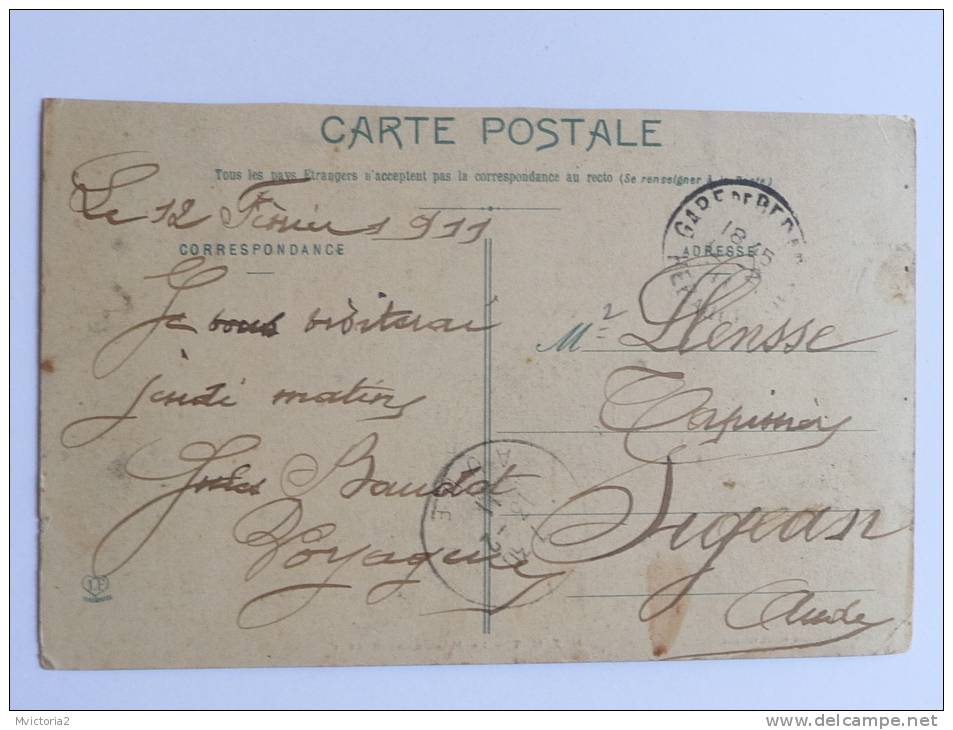 CARTE POSTALE
Tous les pays Etrangers n'acceptent pas la correspondance au recto (Se renseigner à la Poste)
Le 12 Février 1911
CORRESPONDANCE
ADRESSE
GARE DE
18 45
Je vous visiterai
jeudi matin
Jules Baudot
Voyageur
Me Llensse
Tapissier
Sigean
Aude
AUDE
Mvictoria2
www.delcampe.net